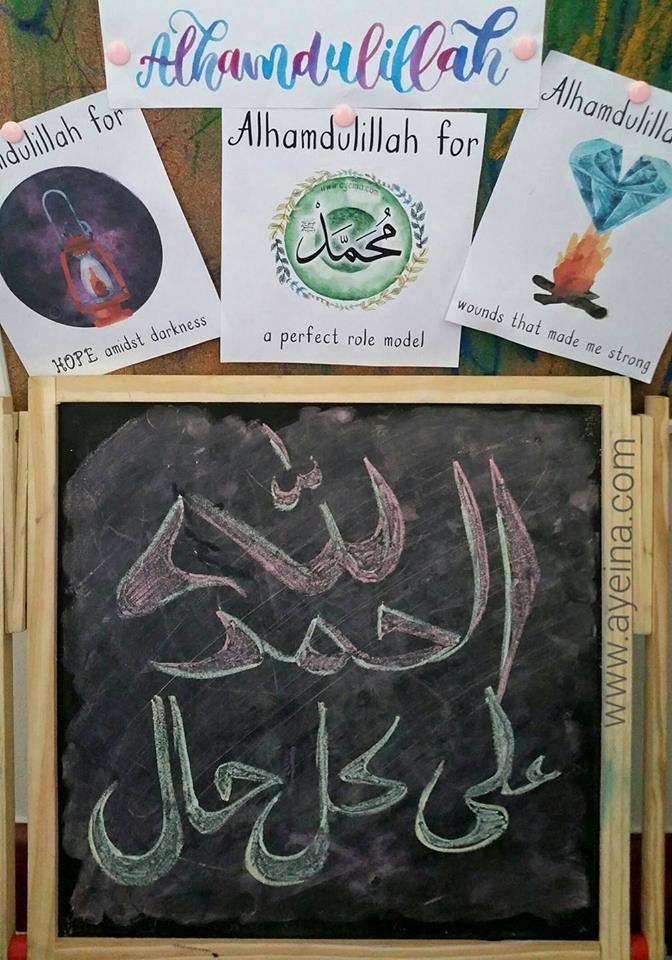 Alhamdulillah
dulillah for
HOPE amidst darkness
Alhamdulillah for
www.ayeina.com
مُحَمَّدْ
ﷺ
a perfect role model
Alhamdulilla
wounds that made me strong
الحمد للّه
على كل حال
www.ayeina.com